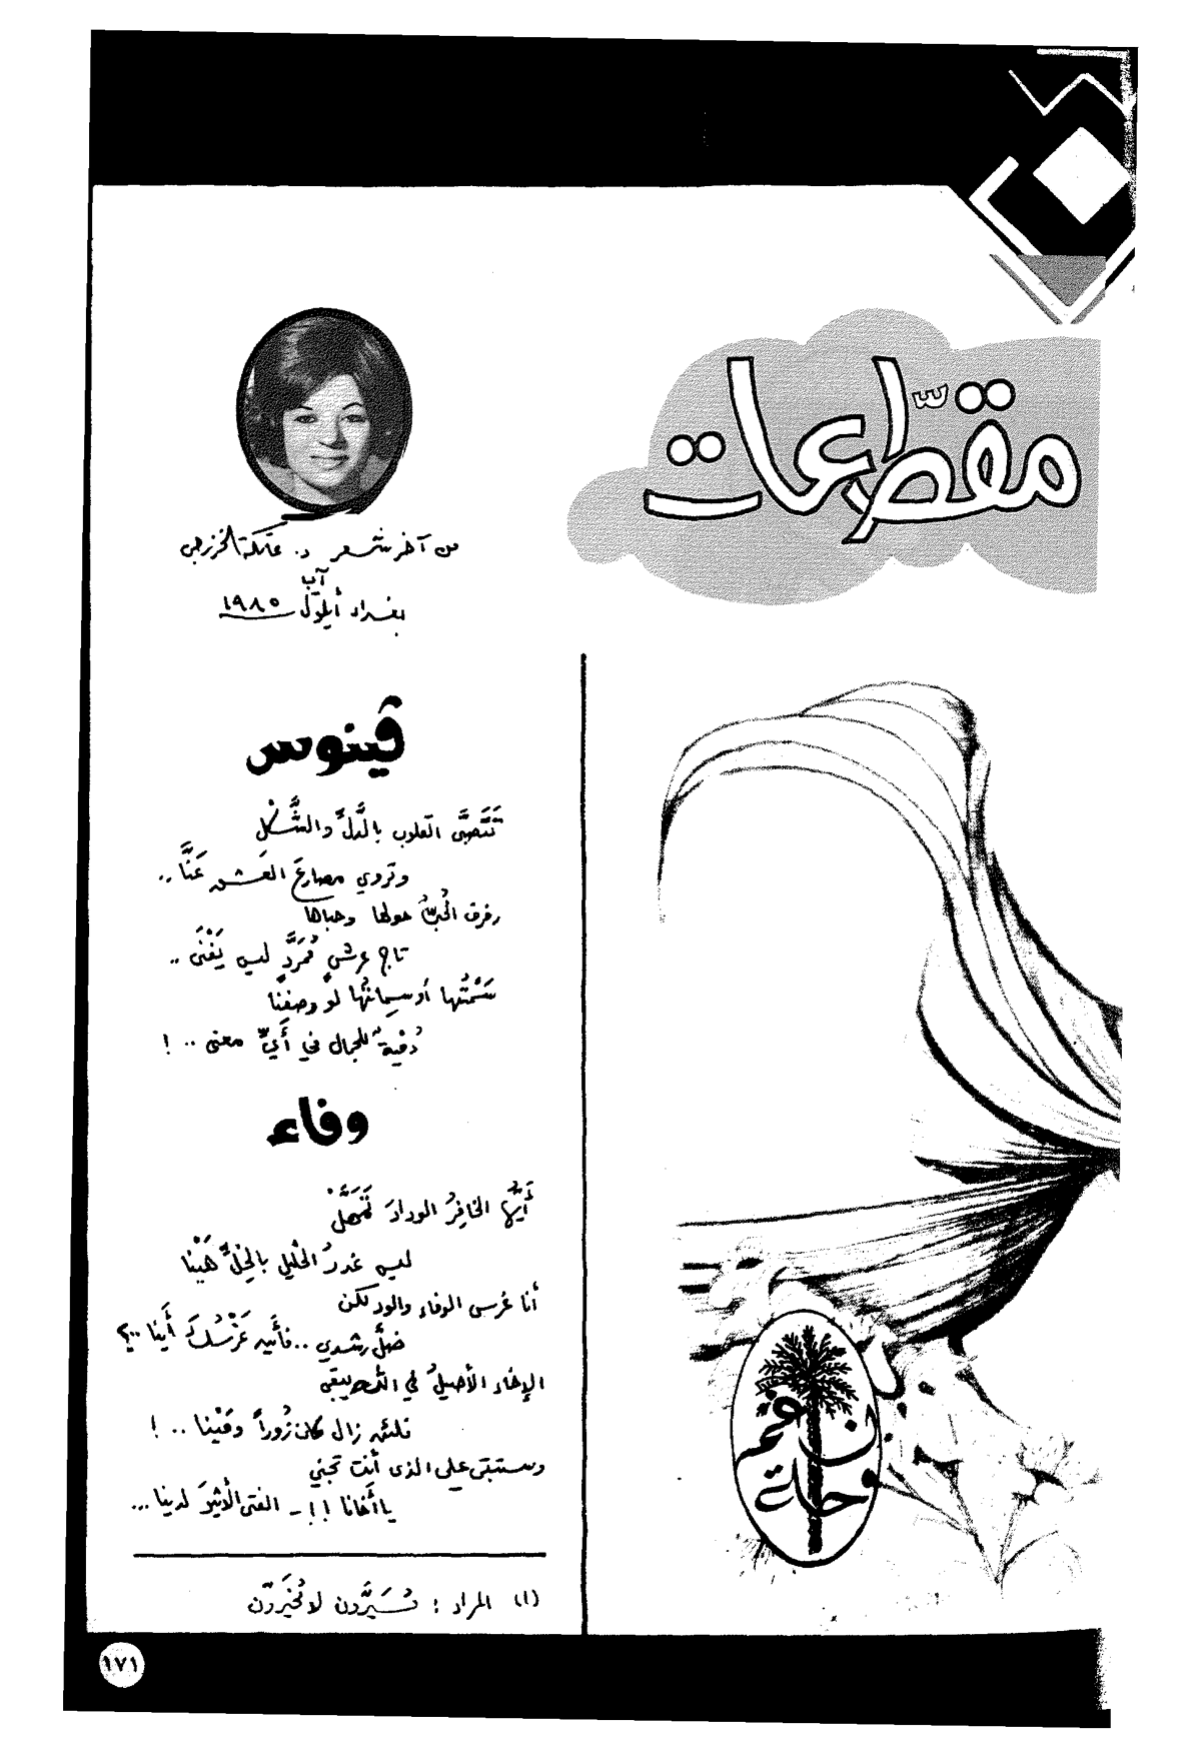 مقطّعات
من آخر شعر د. عاتكة الخزرجي
آب
بغداد أيلول ١٩٨٥
ڤينوس
تَتَصَبَّى القلوب بالدَّلِّ والشَّكْلِ
وتروي مصارعَ العشق عَنَّا..
رفرف الحُبُّ حولها وحباها
تاج عرشٍ مُمَرَّدٍ ليس يَفْنَى ..
سَمْتُها أو سِماتُها لو وصفنا
دُمْيةٌ للجمال في أيِّ معنى .. !
وفاء
أيُّها الخافرُ الودادَ تَمَهَّلْ
ليس غدرُ الخليل بالخِلِّ هَيْنا
أنا غرسى الوفاء والود لكن
ضلَّ رشدي .. فأين غَرْسُكَ أينا ..؟
الإخاء الأصيلُ في يبقى
فلئن زال كان زُوراً ومَيْنا .. !
وستبقى على الذى أنت تجني
يا أخانا !! - الفتى الأثيرَ لدينا ...
(١) المراد : مُسَيَّرون لا مُخَيَّرون
فن
وحلة
١٧١